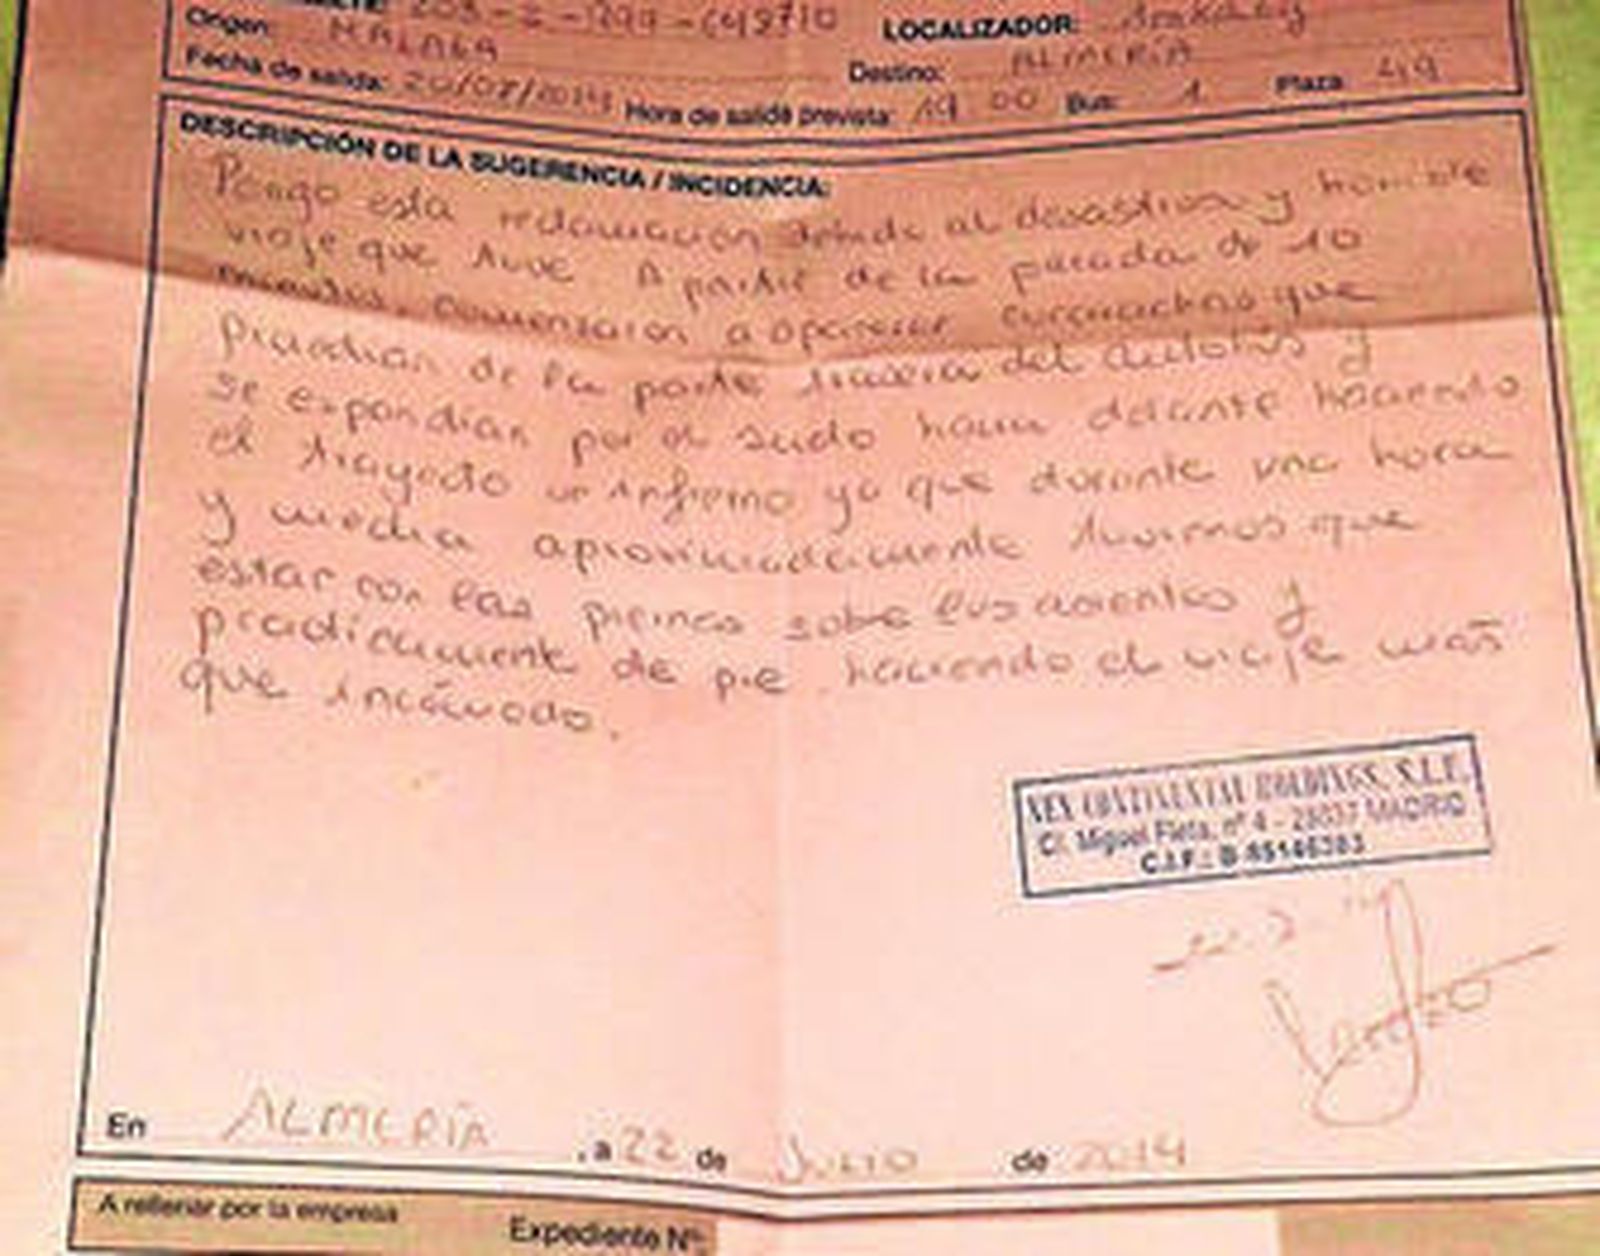 Origen: MALAGA LOCALIZADOR:
Fecha de salida: 20/07/2014 Hora de salida prevista: 19 00 Destino: ALMERÍA Bus: 1 Plaza 49
DESCRIPCIÓN DE LA SUGERENCIA / INCIDENCIA:
Pongo esta reclamación debido al desastroso y horrible
viaje que tuve A partir de la parada de 10
minutos, comenzaron a aparecer cucarachas que
procedian de la parte trasera del autobús y
se expandían por el suelo hacia delante haciendo
el trayecto un infierno ya que durante una hora
y media aproximadamente tuvimos que
estar con las piernas sobre los asientos y
prácticamente de pie haciendo el viaje más
que incómodo.
NEX CONTINENTAL HOLDINGS, S.L.U.
C/. Miguel Fleta, nº 4 - 28037 MADRID
C.I.F.: B-85146363
22.7.14
En ALMERÍA , a 22 de Julio de 2014
A rellenar por la empresa
Expediente Nº: